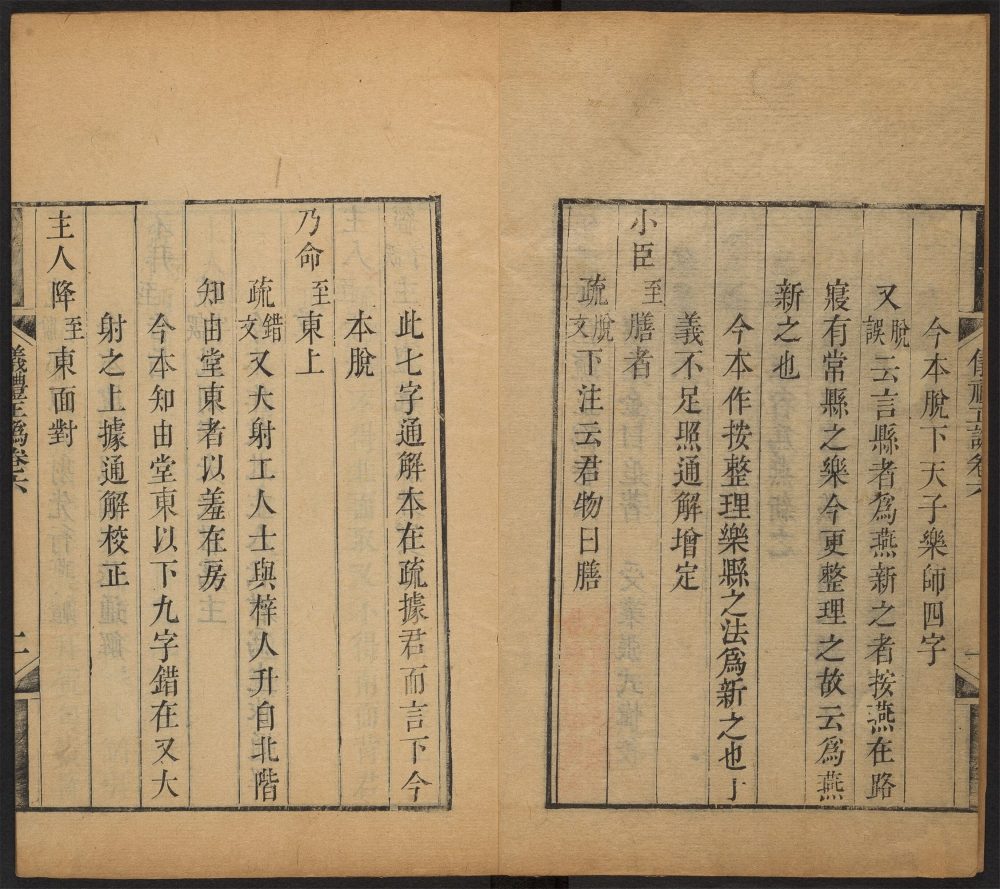 今本脫下天子樂師四字
又脫誤云言縣者爲燕新之者按燕在路
寢有常縣之樂今更整理之故云爲燕
新之也
今本作按整理樂縣之法爲新之也于
義不足照通解增定
小臣至膳者
疏脫文下注云君物曰膳
此七字通解本在疏據君而言下今
本脫
乃命至東上
疏錯文又大射工人士與梓人升自北階
知由堂東者以羞在房
今本知由堂東以下九字錯在又大
射之上據通解校正
主人降至東面對
儀禮正譌卷六